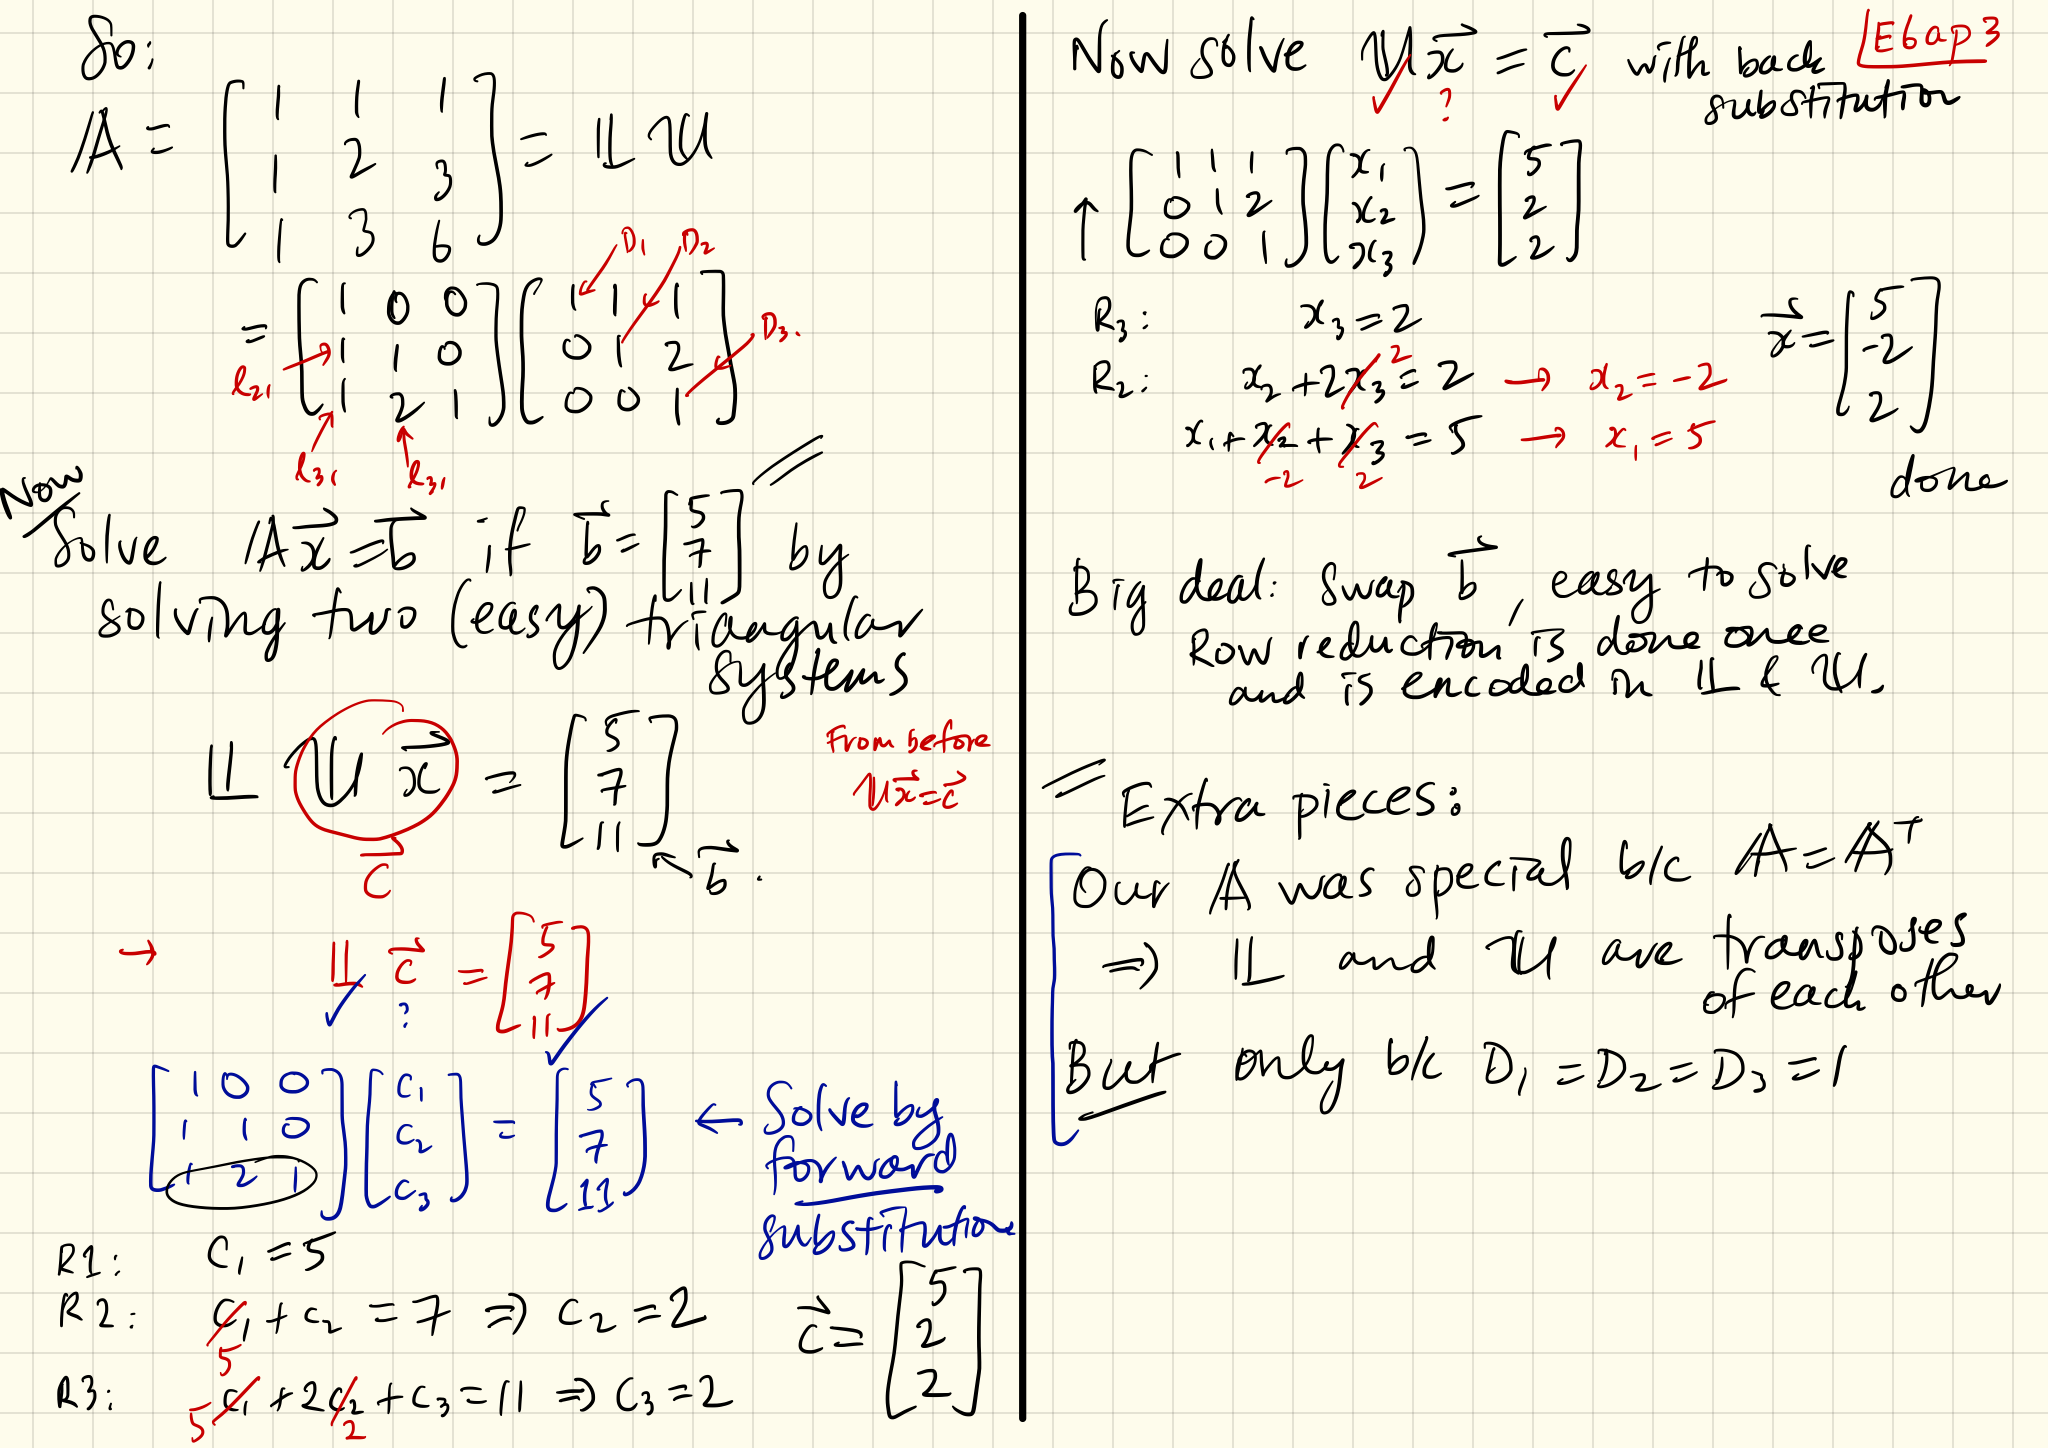 So:
𝔸 = [1 1 1; 1 2 3; 1 3 6] = 𝕃 𝕌
= [1 0 0; 1 1 0; 1 2 1] [1 1 1; 0 1 2; 0 0 1]
D₁ D₂ D₃.
l₂₁
l₃₁ l₃₁
Now
Solve 𝔸x⃗ = b⃗ if b⃗ = [5; 7; 11] by
solving two (easy) triangular
systems
𝕃 𝕌 x⃗ = [5; 7; 11]
c⃗
b⃗.
From before
𝕌x⃗ = c⃗
→ 𝕃 c⃗ = [5; 7; 11]
✓ ? ✓
[1 0 0; 1 1 0; 1 2 1] [c₁; c₂; c₃] = [5; 7; 11] ← Solve by
forward
substitution
R1: c₁ = 5
R2: c₁ + c₂ = 7 ⇒ c₂ = 2
5
R3: 5 c₁ + 2c₂ + c₃ = 11 ⇒ c₃ = 2
2
c⃗ = [5; 2; 2]
E6ap3
Now solve 𝕌x⃗ = c⃗ with back
substitution
✓ ? ✓
↑ [1 1 1; 0 1 2; 0 0 1] [x₁; x₂; x₃] = [5; 2; 2]
R₃: x₃ = 2
R₂: x₂ + 2x₃ = 2 → x₂ = -2
2
x₁ + x₂ + x₃ = 5 → x₁ = 5
-2 2
x⃗ = [5; -2; 2]
done
Big deal: Swap b⃗, easy to solve
Row reduction is done once
and is encoded in 𝕃 & 𝕌.
Extra pieces:
Our 𝔸 was special b/c 𝔸 = 𝔸ᵀ
⇒ 𝕃 and 𝕌 are transposes
of each other
But only b/c D₁ = D₂ = D₃ = 1